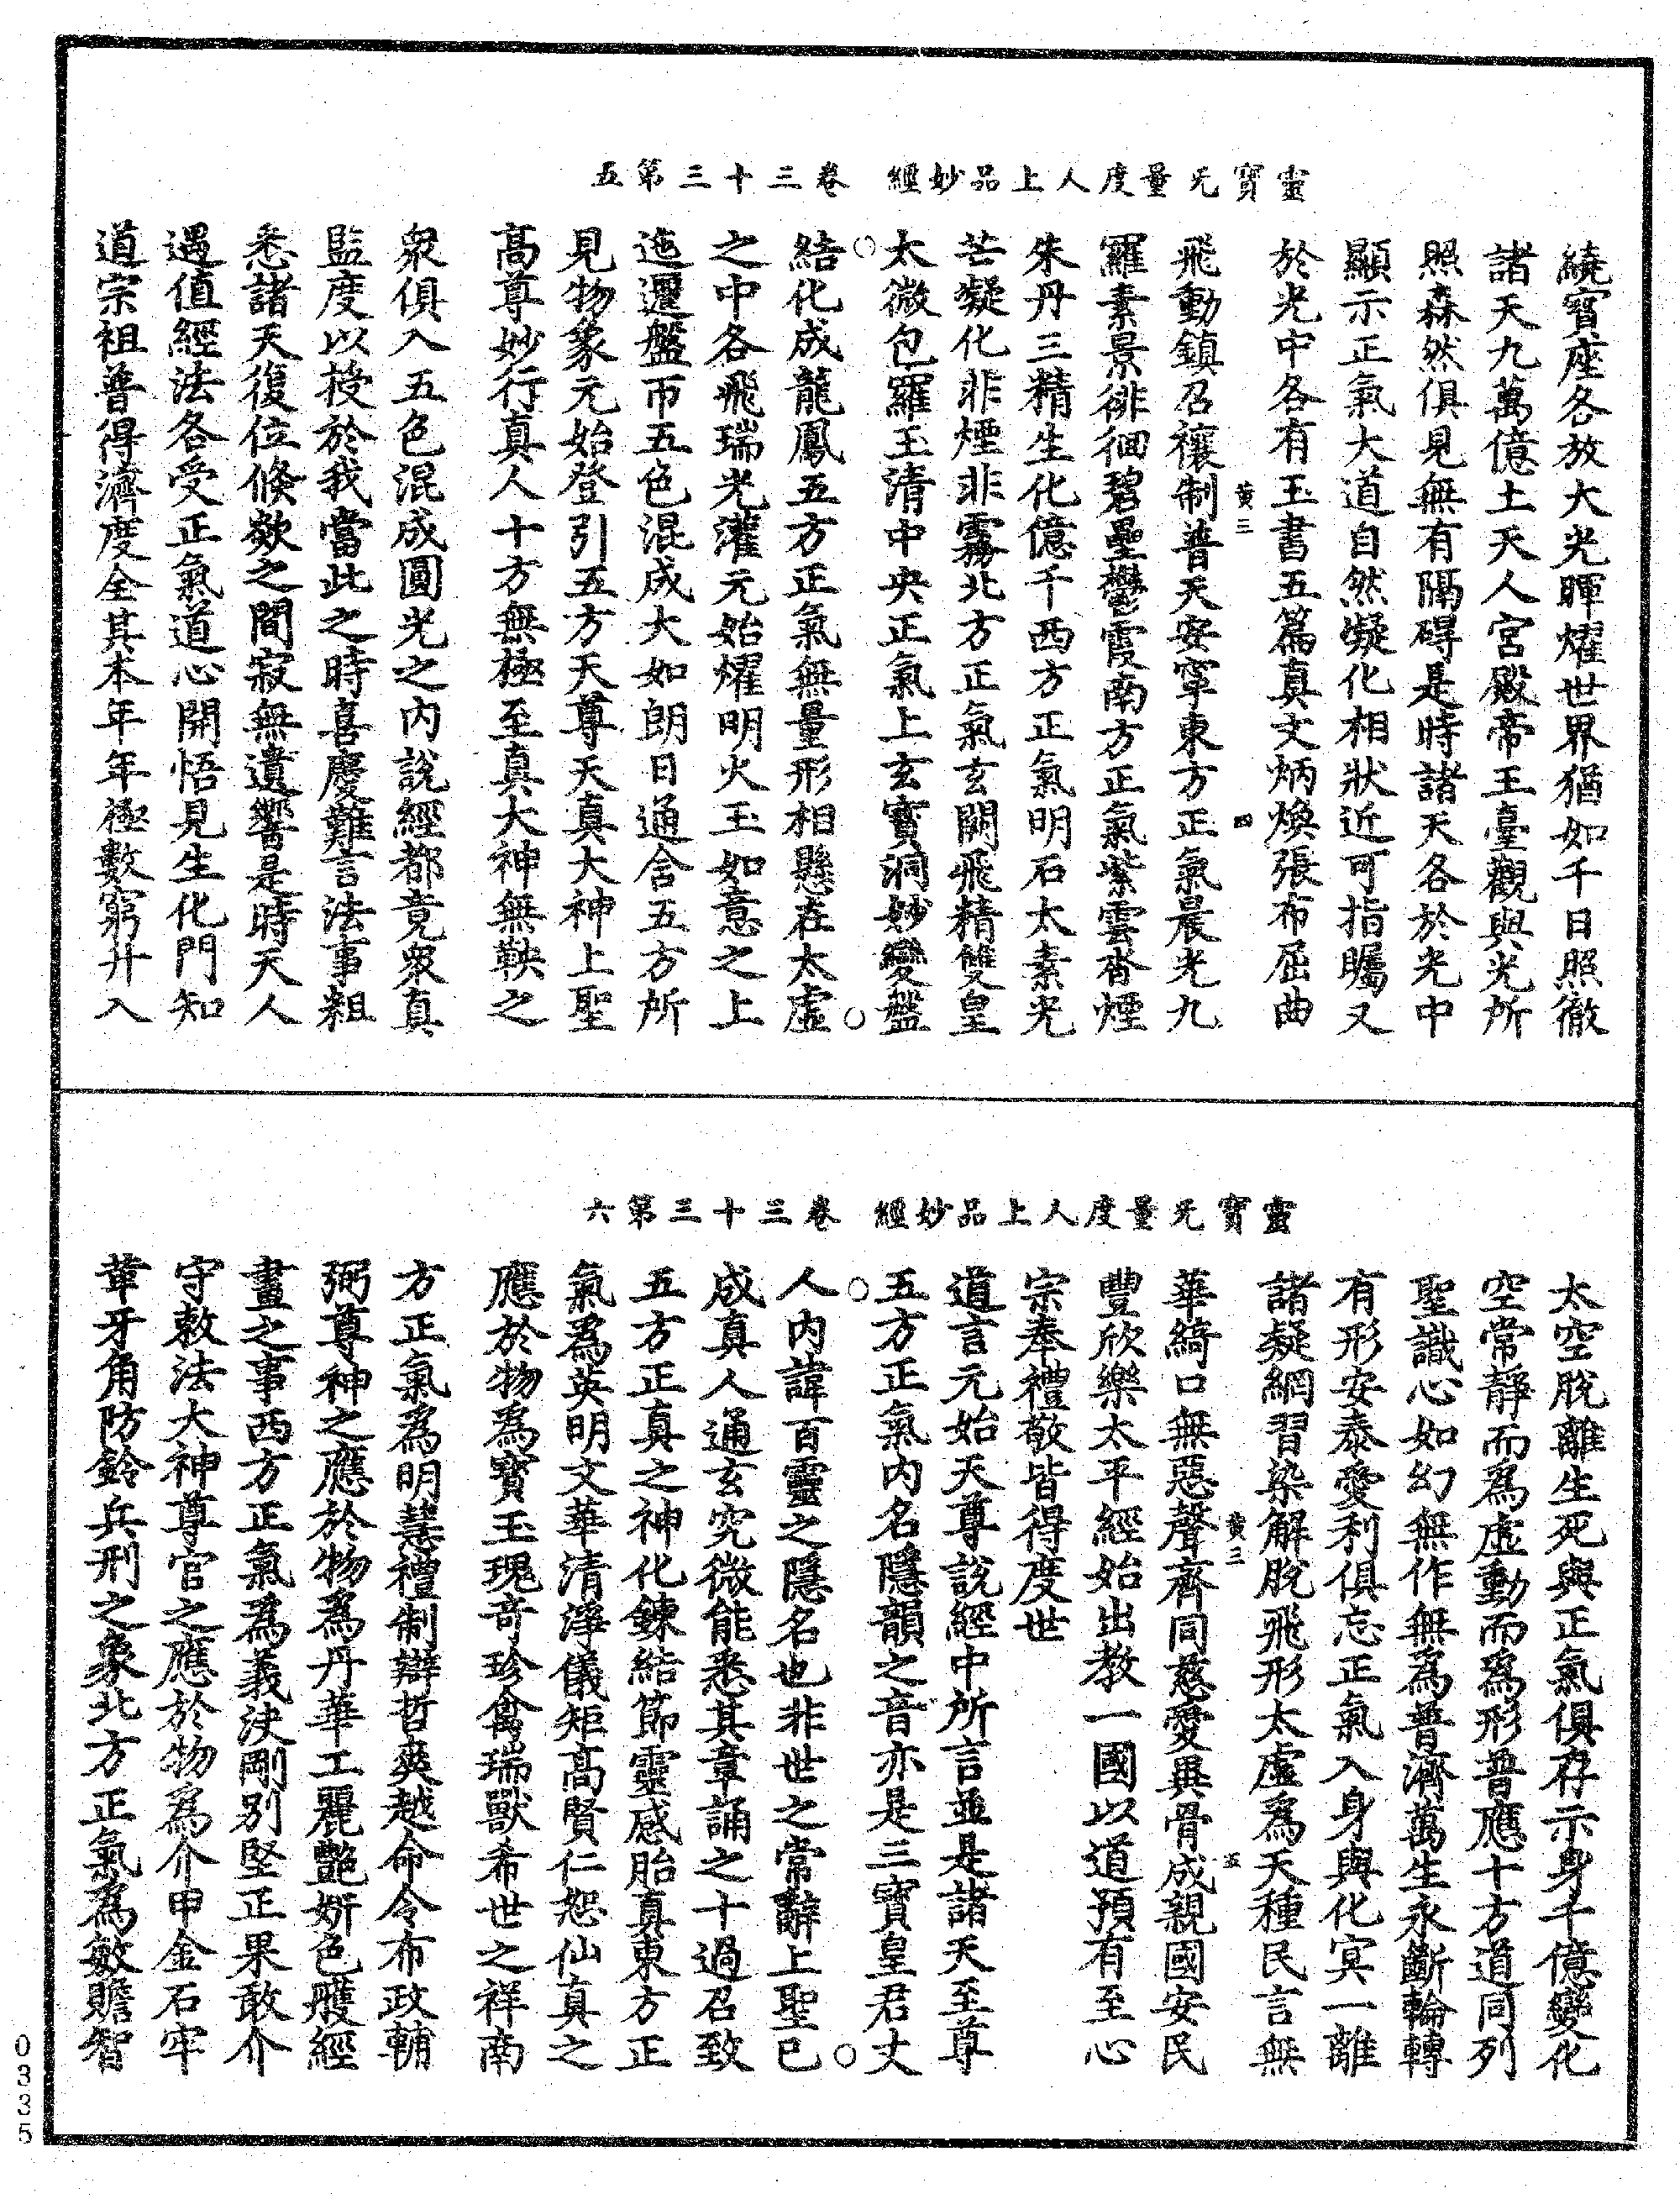 靈寶无量度人上品妙經 卷三十三第五
繞寶座各放大光暉燿世界猶如千日照徹
諸天九萬億土天人宮殿帝王臺觀與光所
照森然俱見無有隔碍是時諸天各於光中
顯示正氣大道自然凝化相狀近可指矚又
於光中各有玉書五篇真文炳煥張布屈曲
黃三 四
飛動鎮召禳制普天安寧東方正氣晨光九
羅素景徘徊碧壘鬱霞南方正氣紫雲沓煙
朱丹三精生化億千西方正氣明石太素光
芒凝化非煙非霧北方正氣玄闕飛精雙皇
太微包羅玉清中央正氣上玄寶洞妙變盤
結化成龍鳳五方正氣無量形相懸在太虛
之中各飛瑞光灌元始燿明火玉如意之上
迤邐盤帀五色混成大如朗日通含五方所
見物象元始登引五方天尊天真大神上聖
高尊妙行真人十方無極至真大神無鞅之
衆俱入五色混成圓光之内說經都竟衆真
監度以授於我當此之時喜慶難言法事粗
悉諸天復位倏欻之間寂無遺響是時天人
遇值經法各受正氣道心開悟見生化門知
道宗祖普得濟度全其本年年極數窮廾入
靈寶无量度人上品妙經 卷三十三第六
太空脫離生死與正氣俱存示身千億變化
空常靜而爲虛動而爲形普應十方道同列
聖識心如幻無作無爲普濟萬生永斷輪轉
有形安泰愛利俱忘正氣入身與化冥一離
諸疑網習染解脫飛形太虛爲天種民言無
黃三 五
華綺口無惡聲齊同慈愛異骨成親國安民
豐欣樂太平經始出教一國以道預有至心
宗奉禮敬皆得度世
道言元始天尊說經中所言並是諸天至尊
五方正氣内名隱韻之音亦是三寶皇君丈
人内諱百靈之隱名也非世之常辭上聖已
成真人通玄究微能悉其章誦之十過召致
五方正真之神化鍊結節靈感胎真東方正
氣爲英明文華清淨儀矩高賢仁恕仙真之
應於物爲寶玉瑰奇珍禽瑞獸希世之祥南
方正氣爲明慧禮制辯哲爽越命令布政輔
弼尊神之應於物爲丹華工麗艷妍色雘經
畫之事西方正氣爲義決剛別堅正果敢介
守敕法大神尊官之應於物爲介甲金石牢
革牙角防鈴兵刑之象北方正氣爲敏贍智
0335